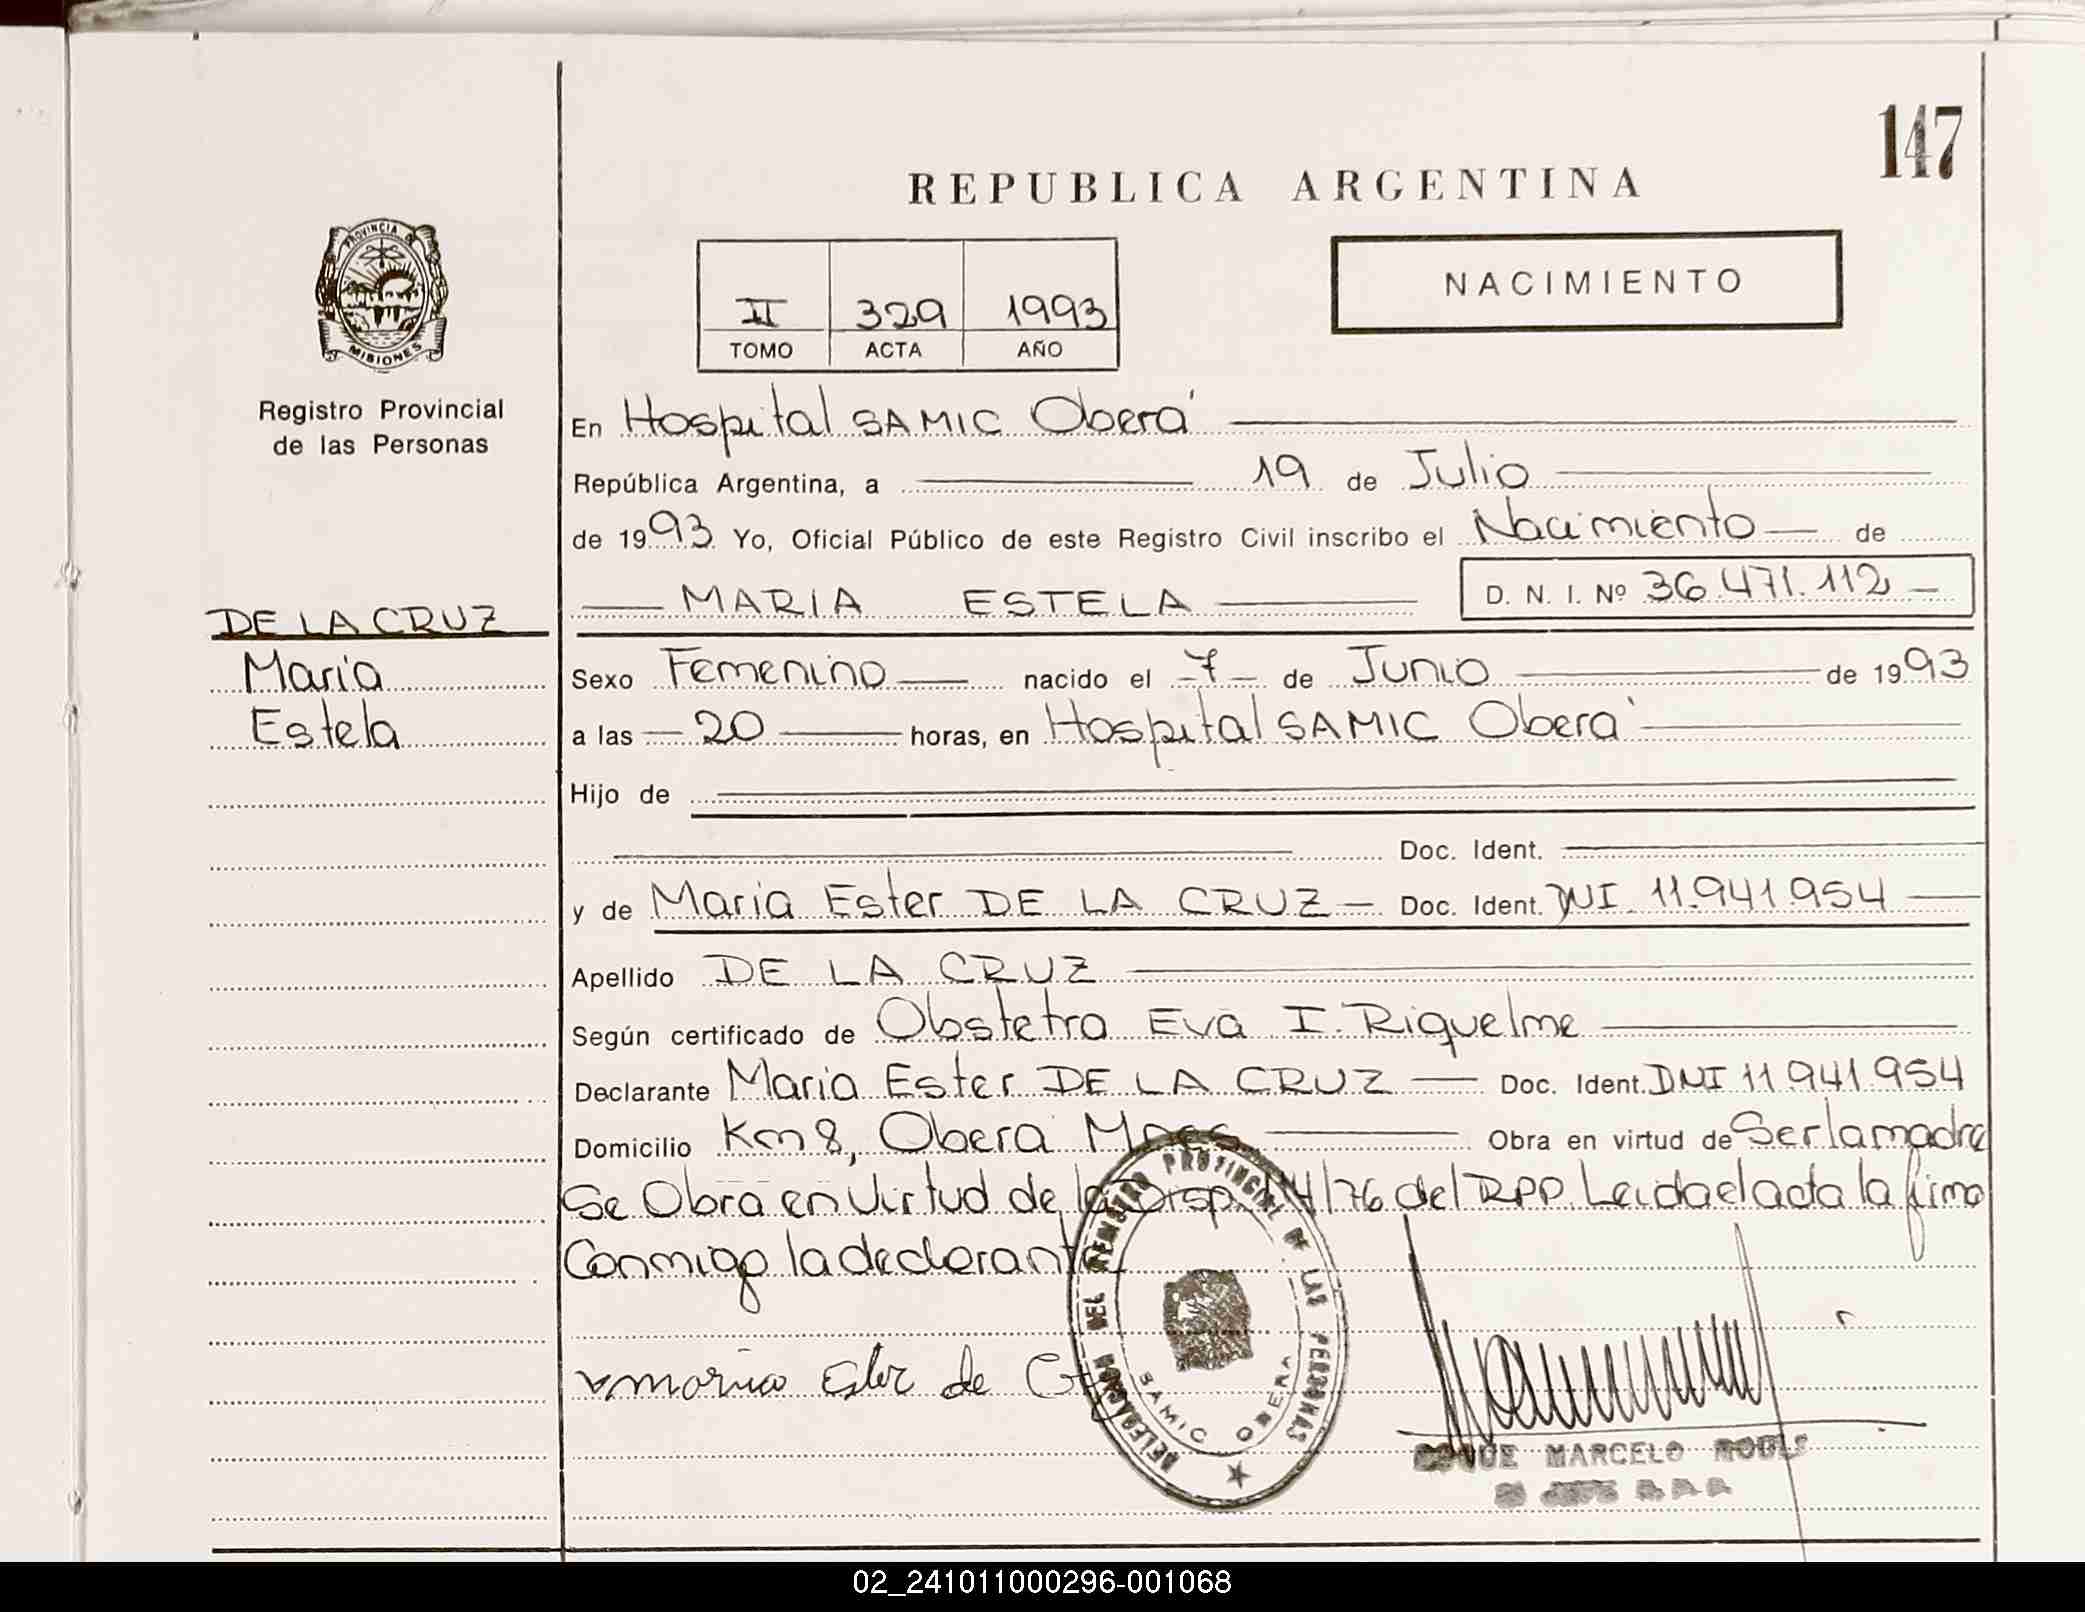 147
REPUBLICA ARGENTINA
PROVINCIA DE
MISIONES
Registro Provincial
de las Personas
II 329 1993
TOMO ACTA AÑO
NACIMIENTO
En Hospital SAMIC Oberá
República Argentina, a 19 de Julio
de 1993 Yo, Oficial Público de este Registro Civil inscribo el Nacimiento de
MARIA ESTELA D. N. I. Nº 36.471.112
DE LA CRUZ
Maria
Estela
Sexo Femenino nacido el 7 de Junio de 1993
a las 20 horas, en Hospital SAMIC Oberá
Hijo de
Doc. Ident.
y de Maria Ester DE LA CRUZ Doc. Ident. DNI 11.941.954
Apellido DE LA CRUZ
Según certificado de Obstetra Eva I. Riquelme
Declarante Maria Ester DE LA CRUZ Doc. Ident. DNI 11.941.954
Domicilio Km 8, Obera Mnes Obra en virtud de Ser la madre
Se Obra en Virtud de la Disp. /76 del RPP. Leida el acta la firma
Conmigo la declarante
maria Ester de
DELEGACION DEL REGISTRO PROVINCIAL DE LAS PERSONAS
SAMIC OBERA
MARCELO
02_241011000296-001068